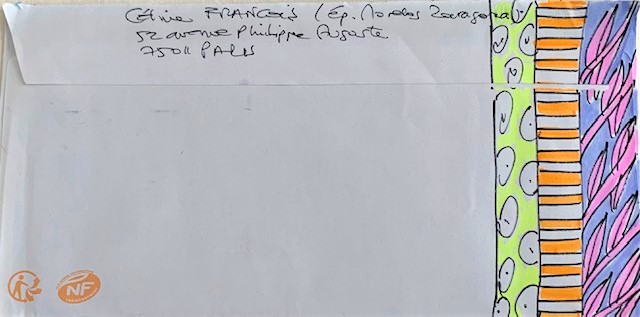 Céline FRANCOIS (Ép. Morales Zaragoza)
52 avenue Philippe Auguste
75011 PARIS
NF